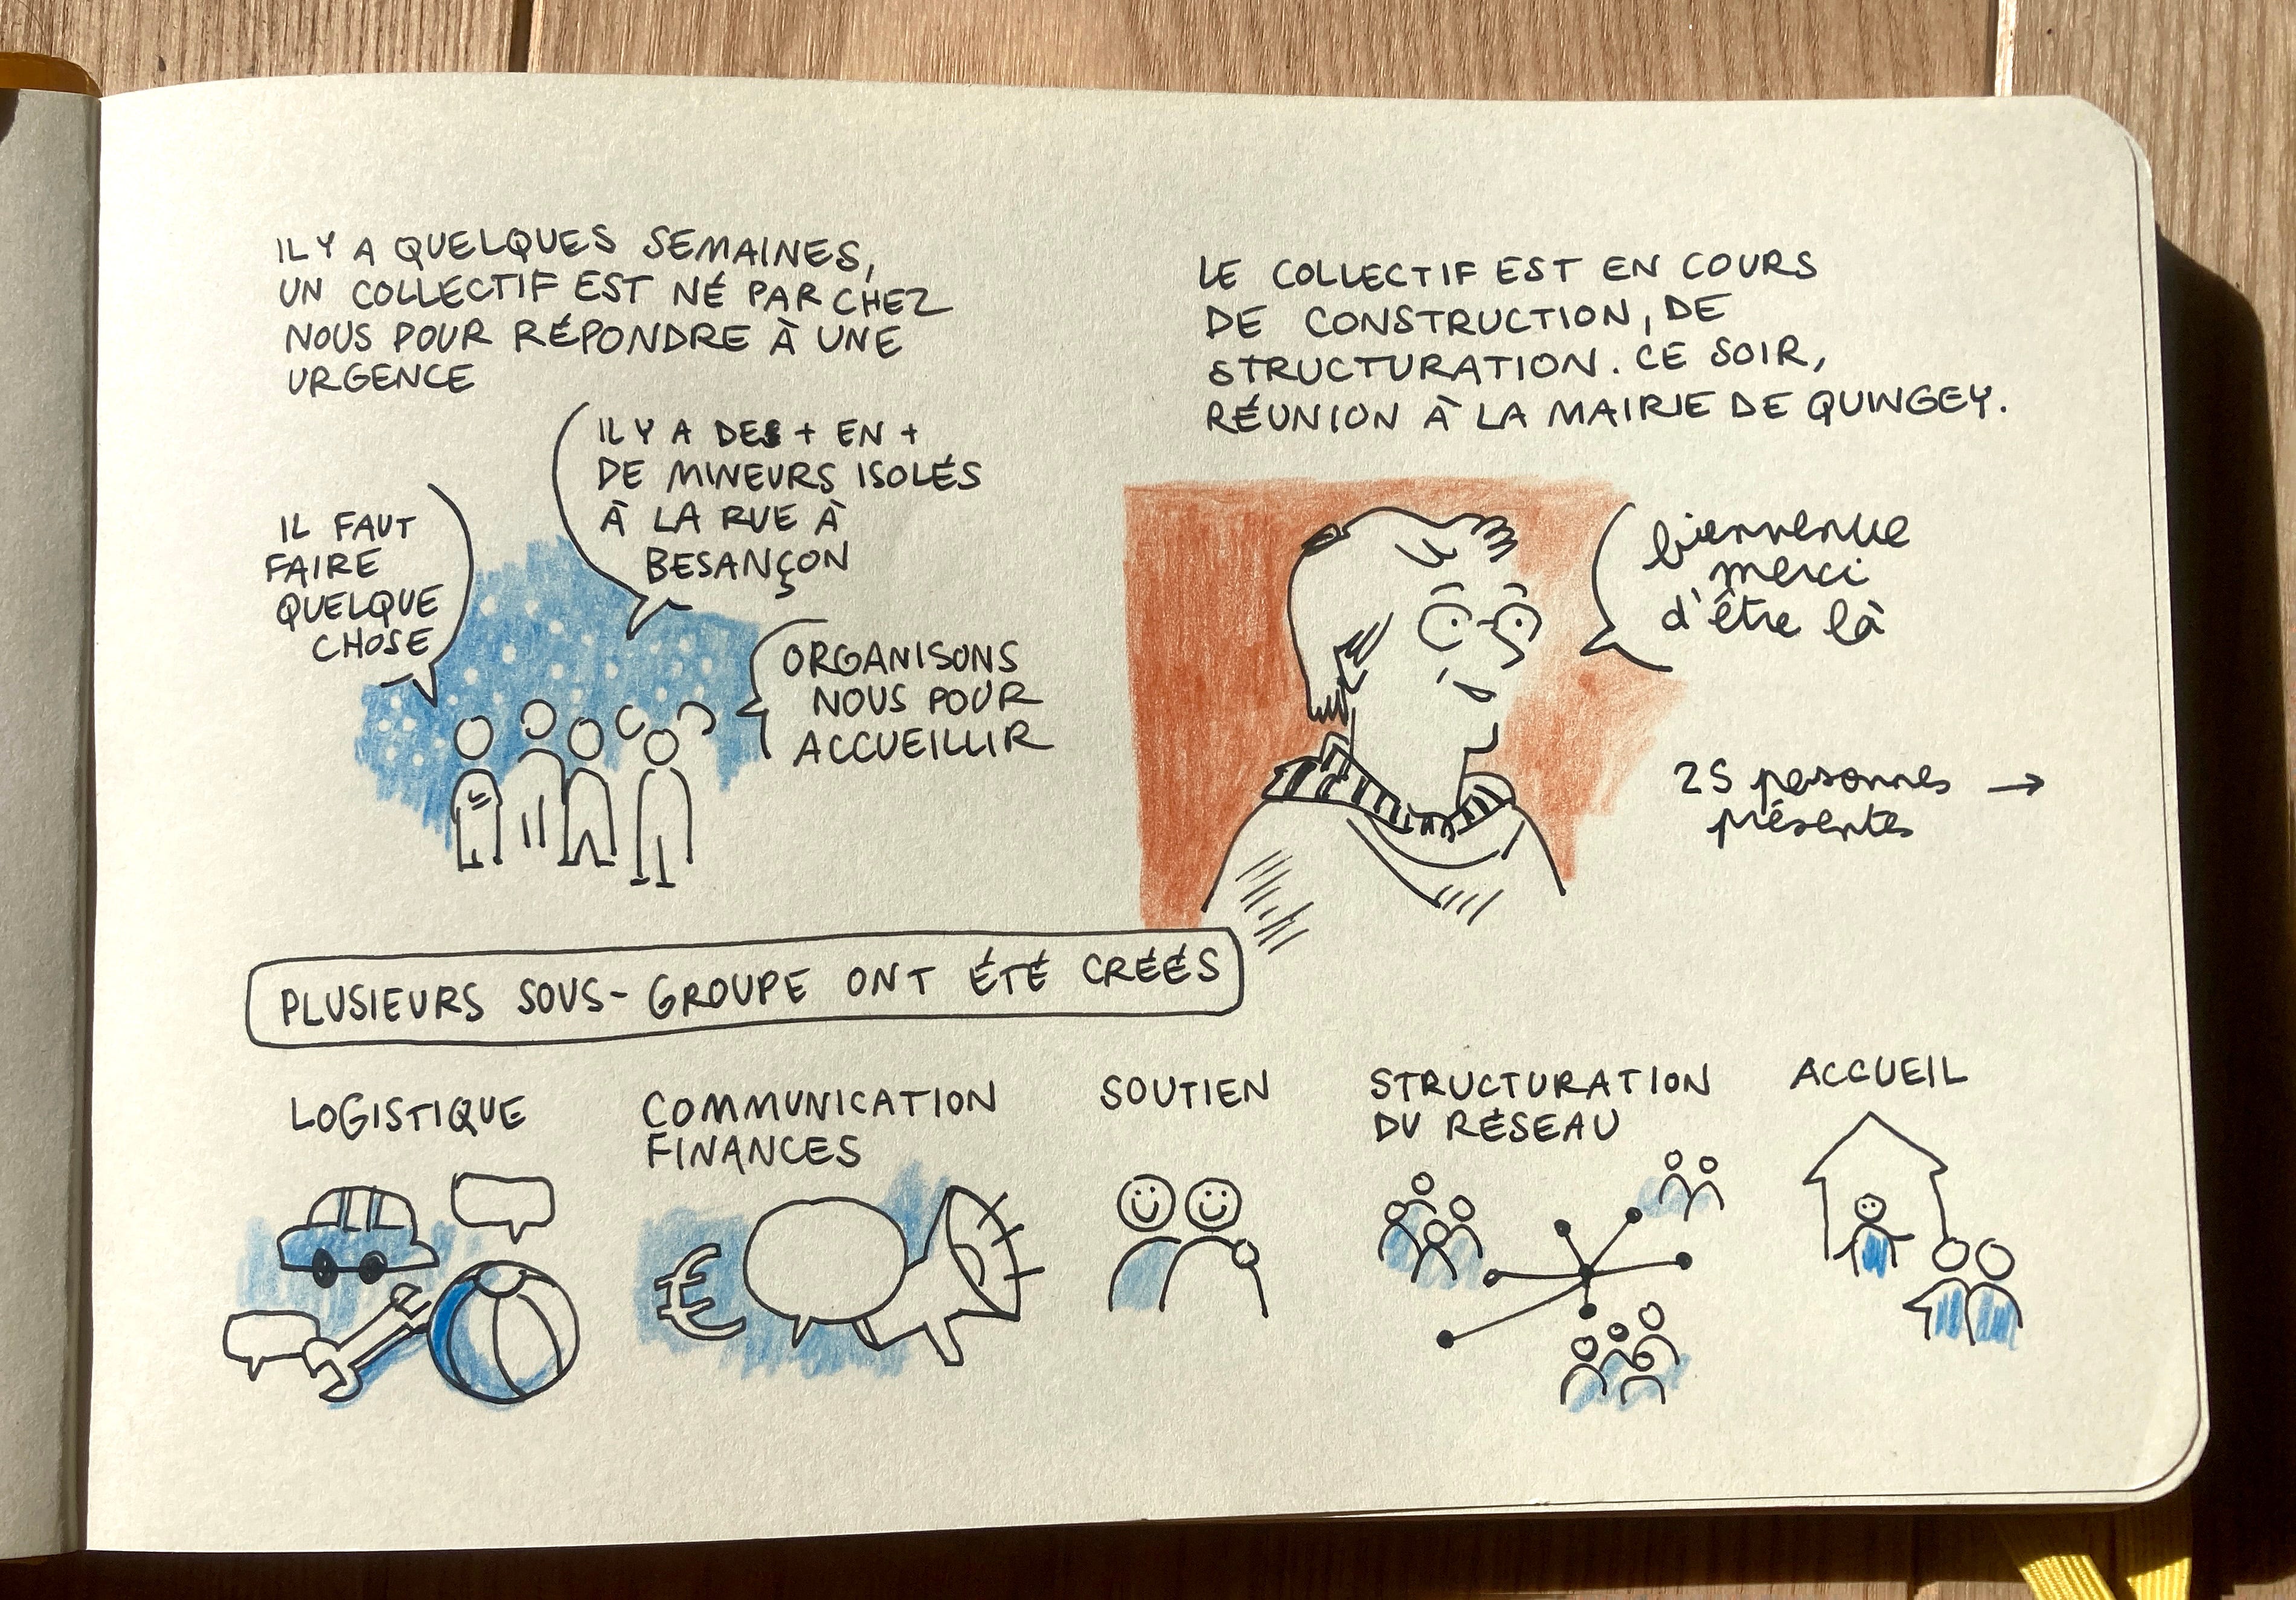 IL Y A QUELQUES SEMAINES,
UN COLLECTIF EST NÉ PAR CHEZ
NOUS POUR RÉPONDRE À UNE
URGENCE
IL FAUT
FAIRE
QUELQUE
CHOSE
IL Y A DES + EN +
DE MINEURS ISOLÉS
À LA RUE À
BESANÇON
ORGANISONS
NOUS POUR
ACCUEILLIR
LE COLLECTIF EST EN COURS
DE CONSTRUCTION, DE
STRUCTURATION. CE SOIR,
RÉUNION À LA MAIRIE DE QUINGEY.
bienvenue
merci
d'être là
25 personnes →
présentes
PLUSIEURS SOUS-GROUPE ONT ÉTÉ CRÉÉS
LOGISTIQUE
COMMUNICATION
FINANCES
€
SOUTIEN
STRUCTURATION
DU RÉSEAU
ACCUEIL